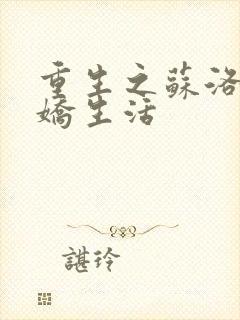 重生之蘇洛
嬌生活
諶玲